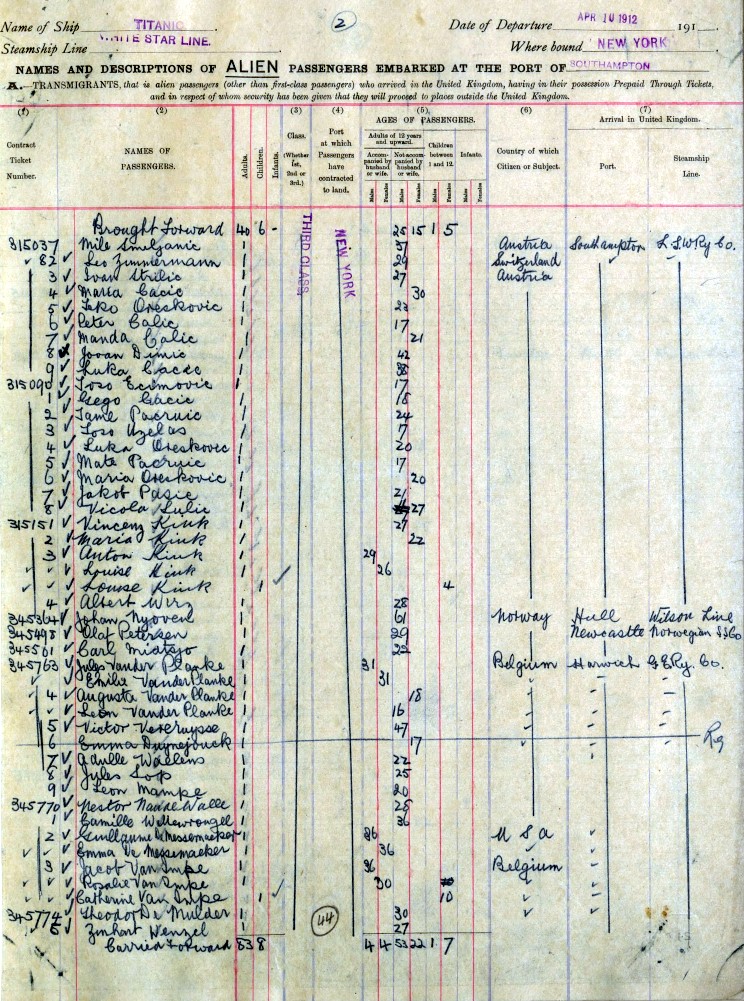 2
Name of Ship TITANIC Date of Departure APR 10 1912 191
Steamship Line WHITE STAR LINE. Where bound NEW YORK
NAMES AND DESCRIPTIONS OF ALIEN PASSENGERS EMBARKED AT THE PORT OF SOUTHAMPTON
A.—TRANSMIGRANTS, that is alien passengers (other than first-class passengers) who arrived in the United Kingdom, having in their possession Prepaid Through Tickets,
and in respect of whom security has been given that they will proceed to places outside the United Kingdom.
(1) (2) (3) (4) (5) (6) (7)
Contract Ticket Number.
NAMES OF PASSENGERS.
Adults. Children. Infants.
Class. (Whether 1st, 2nd or 3rd.)
Port at which Passengers have contracted to land.
AGES OF PASSENGERS.
Adults of 12 years and upward.
Accompanied by husband or wife.
Not accompanied by husband or wife.
Children between 1 and 12.
Infants.
Males Females Males Females Males Females Males Females
Country of which Citizen or Subject.
Arrival in United Kingdom.
Port.
Steamship Line.
THIRD CLASS.
NEW YORK
Brought Forward 40 6 - 25 15 1 5
315037 Mile Smiljanic 1 37 Austria Southampton L.S.W Ry Co.
82 Leo Zimmermann 1 29 Switzerland
3 Ivan Strilic 1 27 Austria
4 Maria Cacic 1 30
5 Jeko Oreskovic 1 23
6 Peter Calic 1 17
7 Manda Calic 1 21
8 Jovan Dimic 1 42
9 Luka Cacic 1 38
315090 Joso Ecimovic 1 17
1 Grego Cacic 1 18
2 Tame Pacruic 1 24
3 Joso Uzelas 1 17
4 Luka Oreskovic 1 20
5 Mate Pacruic 1 17
6 Maria Oreskovic 1 20
7 Jakob Pasic 1 21
8 Vicola Lulic 1 27
315151 Vincenz Kink 1 27
2 Maria Kink 1 22
3 Anton Kink 1 29
Louise Kink 1 26
Louise Kink 1 4
4 Albert Wirz 1 28
345364 Johan Nyoven 1 61 Norway Hull Wilson Line
345498 Olaf Petersen 1 29 Newcastle Norwegian S.S Co
345501 Carl Midtsjo 1 22
345763 Jules Vander Planke 1 31 Belgium Harwich G.E Ry. Co.
Emilie VanderPlanke 1 31
4 Augusta Vander Planke 1 18
Leon Vander Planke 1 16
5 Victor Vercruysse 1 47
6 Emma Duynejouck 1 17 Rg
7 1 22
8 Jules Sop 1 25
9 Leon Mampe 1 20
345770 Nestor Nande Walle 1 28
1 Camille 1 36
2 Guillaume De Messemaeker 1 36 U S A
Emma De Messemaeker 1 36
3 Jacob Van Impe 1 36 Belgium
Rosalie Van Impe 1 30
Catherine Van Impe 1 10
345774 Theodor De Mulder 1 30
5 Zimhart Wenzel 1 27
44
Carried Forward 83 8 4 4 53 22 1 7